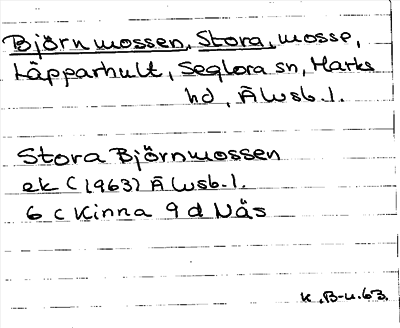 Björnmossen, Stora, mosse,
Läpparhult, Seglora sn, Marks
hd, Älvsb. l.
Stora Björnmossen
ek (1963) Älvsb. l.
6 c Kinna 9 d Näs
K. B-u. 63.